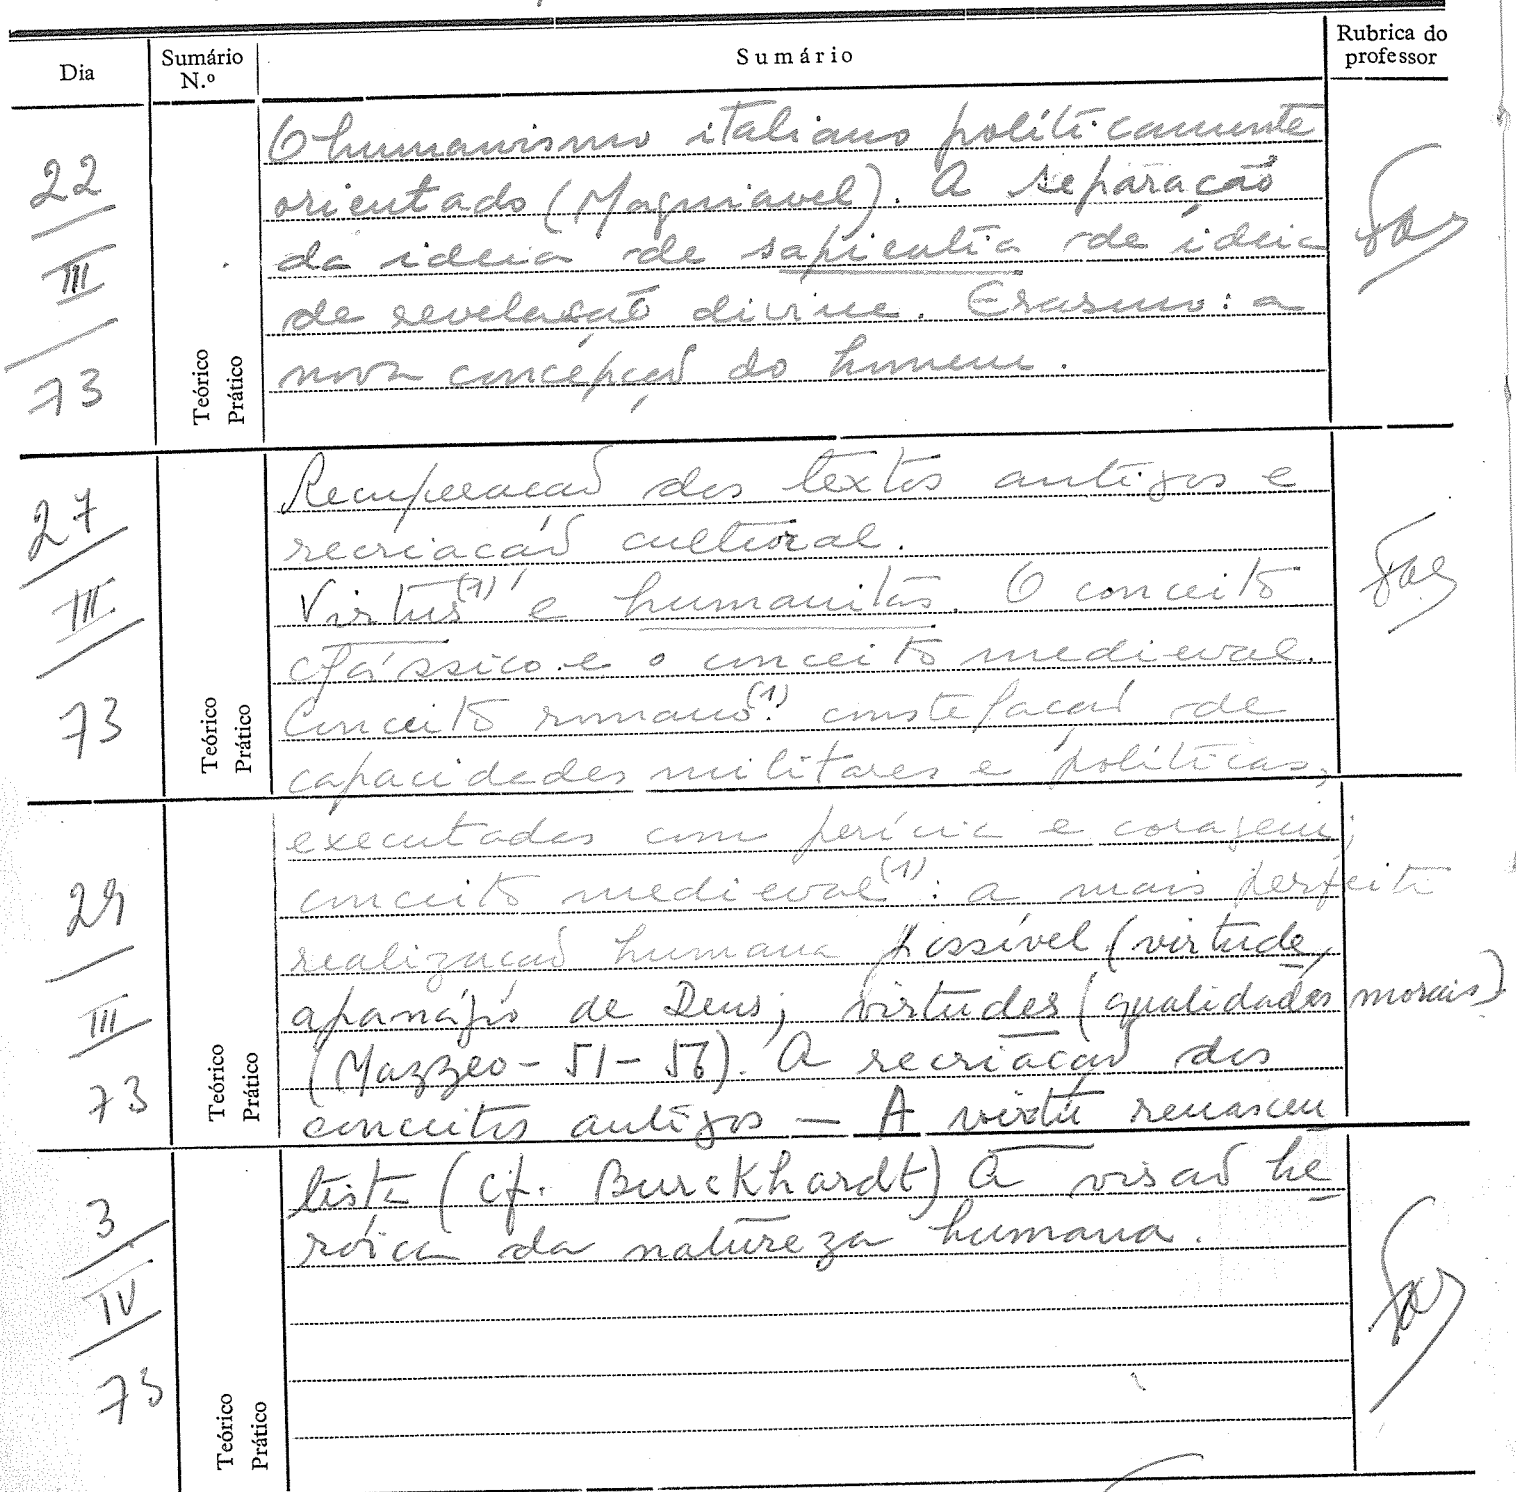 Dia
Sumário N.º
Sumário
Rubrica do professor
22
III
73
Teórico
Prático
O humanismo italiano politicamente
orientado (Maquiavel). A separação
da ideia de sapientia de ideia
de revelação divina. Erasmo: a
nova concepção do homem.
27
III
73
Teórico
Prático
Recuperação dos textos antigos e
recriação cultural.
Virtus(1) e humanitas. O conceito
clássico e o conceito medieval.
Conceito romano(1): constelação de
capacidades militares e políticas,
29
III
73
Teórico
Prático
executadas com perícia e coragem;
conceito medieval(1): a mais perfeita
realização humana possível (virtude,
apanágio de Deus; virtudes (qualidades morais)
(Mazzeo - 51 - 56). A recriação dos
conceitos antigos — A virtù renascen
3
IV
73
Teórico
Prático
tista (cf. Burckhardt) A visão he
róica da natureza humana.